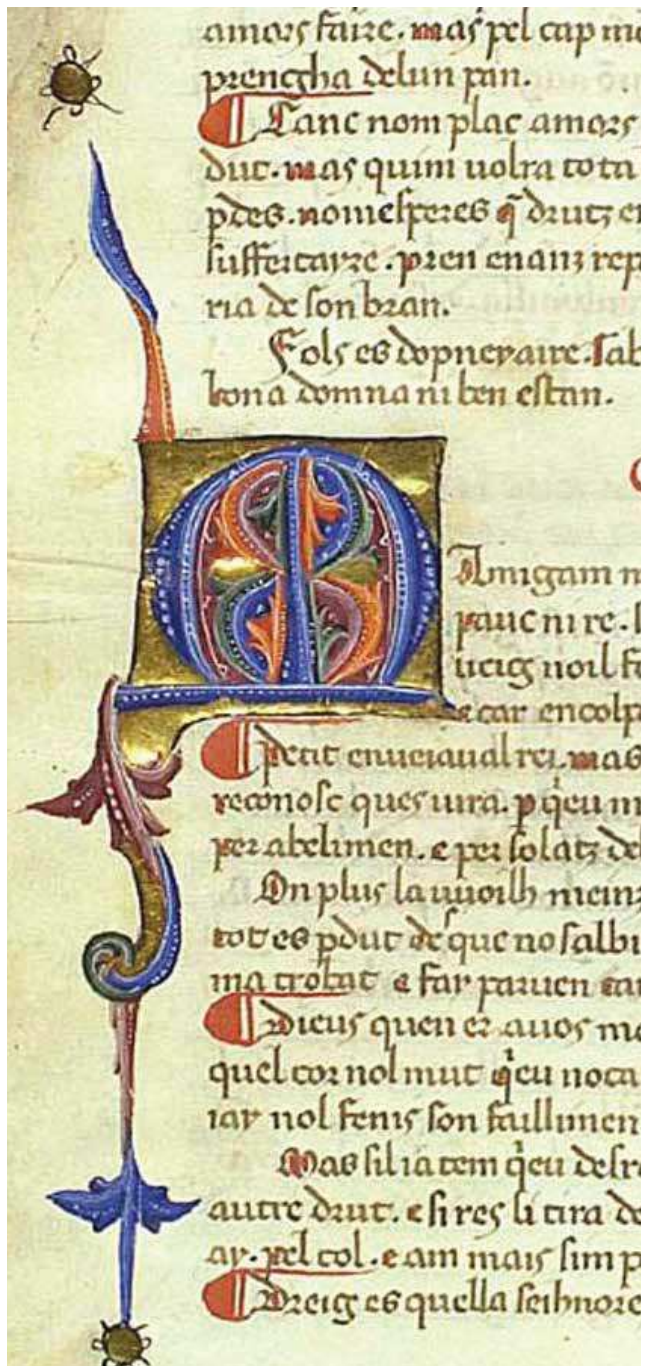 amors faire. mas pel cap
prencgha delun pan.
Tanc nom plac amors
dut. mas quim uolra tota
pdes. nomesperes q̄ drutz
suffertayre. pren enanz
ria de son bran.
Fols es dopneyaire.
bona domna ni ben estan.
M
Amigam
pauc ni re.
ucig noil
e car encolp
petit enueiaual rei. mas
reconosc ques uira. p qeu
per abelimen. e per solatz
On plus la uuoilh meinz
tot es pdut des que no
ma trobat e far paruen
Dieus quen er auos
quel cor nol mut qeu
iay nol fenis son faillimen
Mas sil ia tem qeu
autre drut. e si res li tira
ay. pel col. e am mais
Dreig es quella seihnore